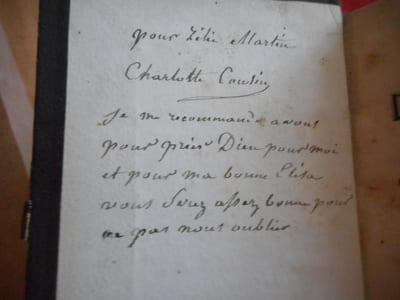 pour Zélie Martin
Charlotte Cousin
Je me recommande a vous
pour prier Dieu pour moi
et pour ma bonne Elisa
vous serez assez bonne pour
ne pas nous oublier